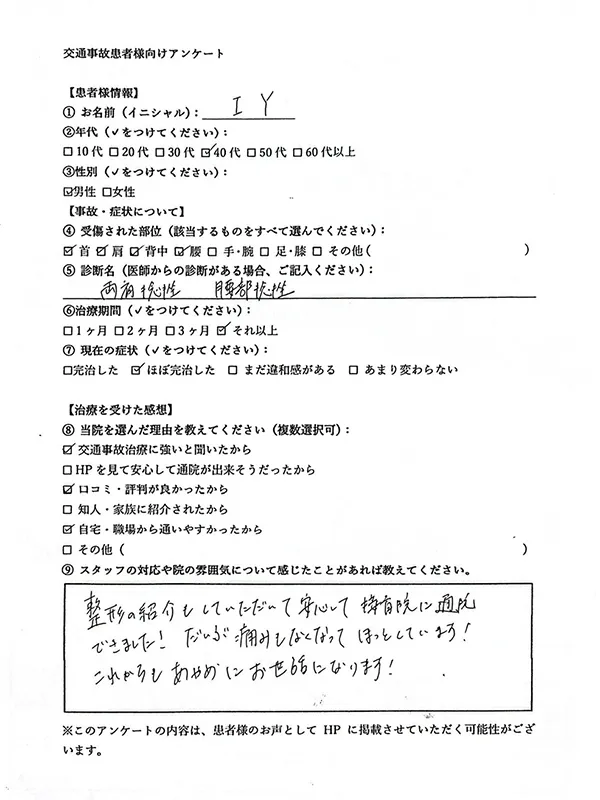 交通事故患者様向けアンケート
【患者様情報】
① お名前（イニシャル）： I Y
②年代（✓をつけてください）：
□10代 □20代 □30代 ☑40代 □50代 □60代以上
③性別（✓をつけてください）：
☑男性 □女性
【事故・症状について】
④ 受傷された部位（該当するものをすべて選んでください）：
☑ 首 ☑ 肩 ☑ 背中 ☑ 腰 □ 手・腕 □ 足・膝 □ その他（ ）
⑤ 診断名（医師からの診断がある場合、ご記入ください）：
両肩捻挫 腰部捻挫
⑥治療期間（✓をつけてください）：
□1ヶ月 □2ヶ月 □3ヶ月 ☑ それ以上
⑦ 現在の症状（✓をつけてください）：
□完治した ☑ ほぼ完治した □ まだ違和感がある □ あまり変わらない
【治療を受けた感想】
⑧ 当院を選んだ理由を教えてください（複数選択可）：
☑ 交通事故治療に強いと聞いたから
□HPを見て安心して通院が出来そうだったから
☑ 口コミ・評判が良かったから
□ 知人・家族に紹介されたから
☑ 自宅・職場から通いやすかったから
□ その他（ ）
⑨ スタッフの対応や院の雰囲気について感じたことがあれば教えてください。
整形の紹介もしていただいて安心して接骨院に通院
できました！ だいぶ痛みもなくなって ほっとしています！
これからも あやめにお世話になります！
※このアンケートの内容は、患者様のお声として HP に掲載させていただく可能性がござ
います。